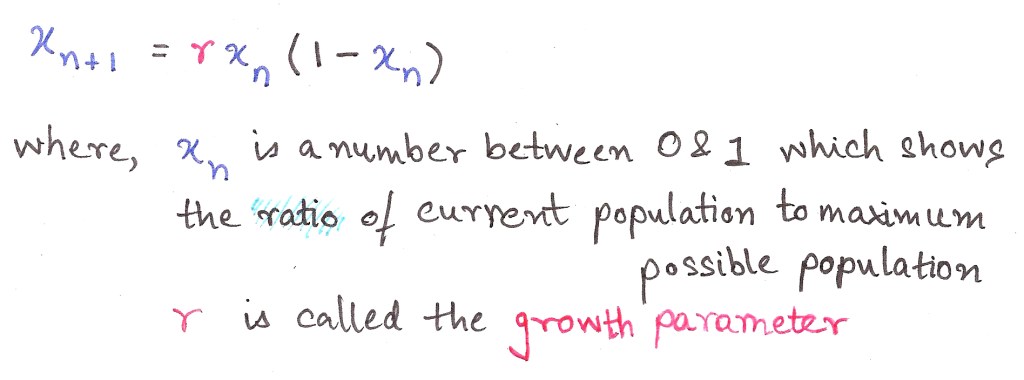 xₙ₊₁ = r xₙ (1 - xₙ)
where, xₙ is a number between 0 & 1 which shows
the ratio of current population to maximum
possible population
r is called the growth parameter